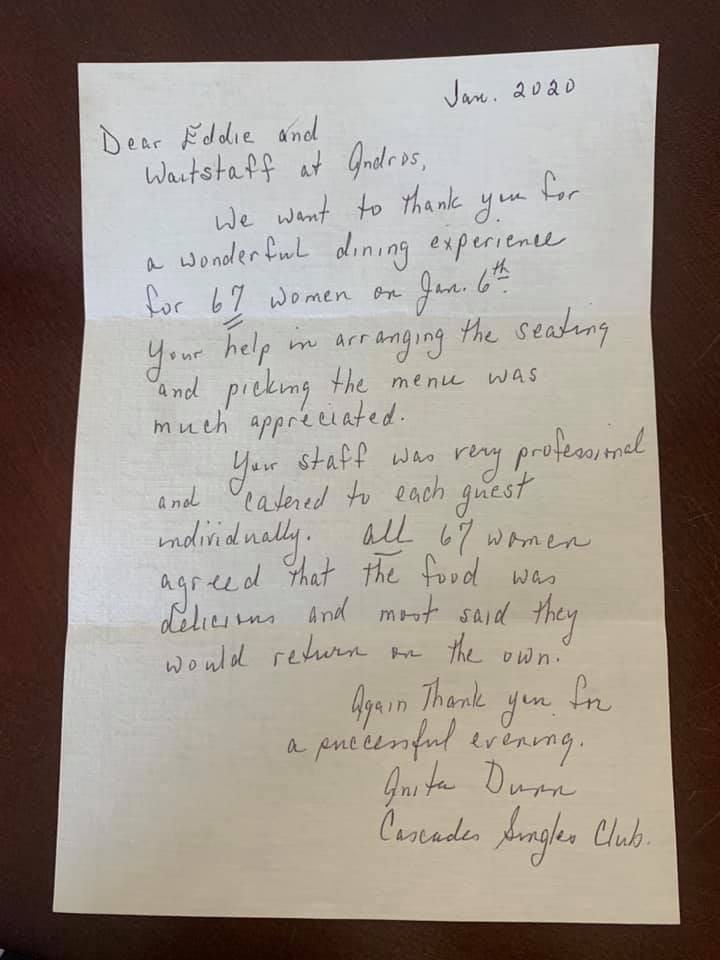 Jan. 2020
Dear Eddie and
Waitstaff at Andros,
We want to thank you for
a wonderful dining experience
for 67 women on Jan. 6th.
Your help in arranging the seating
and picking the menu was
much appreciated.
Your staff was very professional
and catered to each guest
individually. All 67 women
agreed that the food was
delicious and most said they
would return on the own.
Again Thank you for
a successful evening.
Anita Dunn
Cascades Singles Club.